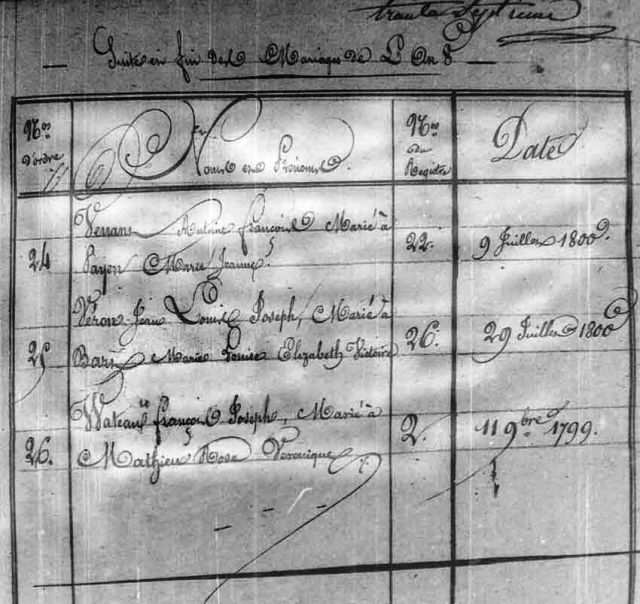 Suite en fin des Mariages de L'An 8
N.os d'ordre
Noms et Prénoms.
N.os du Registre
Date
Antoine François Marié à
24 Payen Marie Jeanne 22. 9 Juillet 1800.
Veron Jean Louis Joseph, Marié à
25 Marie Louise Elizabeth Victoire 26. 29 Juillet 1800
Wateau François Joseph, Marié à
26. Mathieu Rose Veronique. 2. 11 9bre 1799.